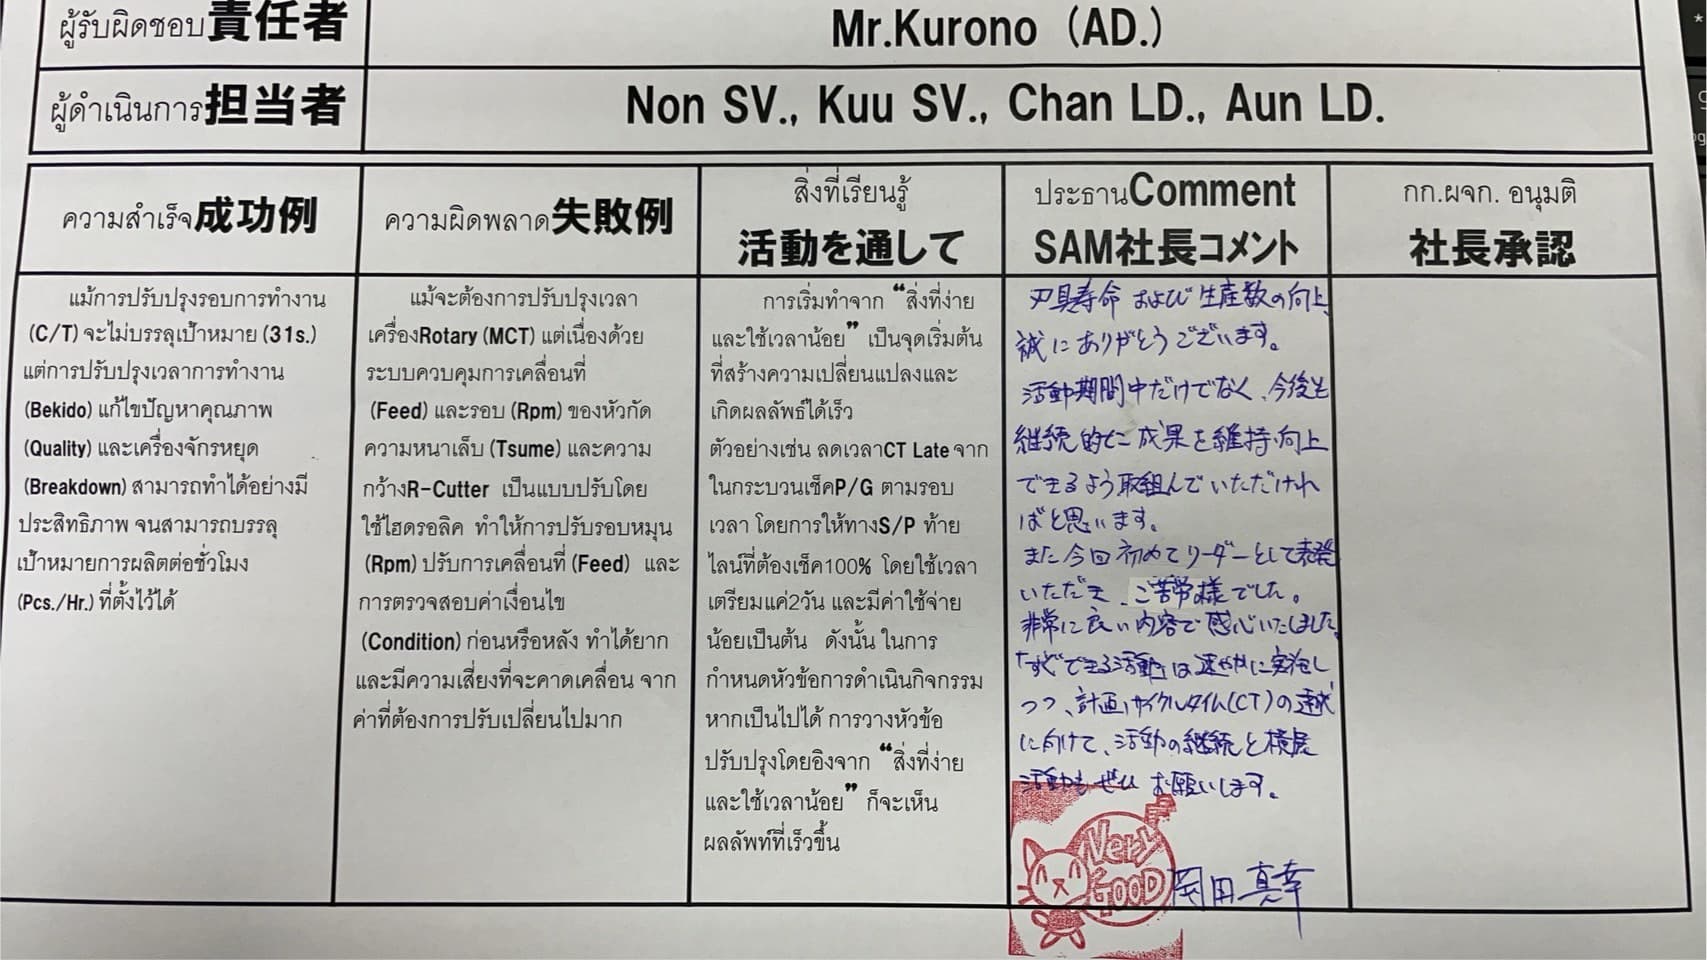 ผู้รับผิดชอบ責任者
Mr.Kurono (AD.)
ผู้ดำเนินการ担当者
Non SV., Kuu SV., Chan LD., Aun LD.
ความสำเร็จ成功例
แม้การปรับปรุงรอบการทำงาน
(C/T) จะไม่บรรลุเป้าหมาย (31s.)
แต่การปรับปรุงเวลาการทำงาน
(Bekido) แก้ไขปัญหาคุณภาพ
(Quality) และเครื่องจักรหยุด
(Breakdown) สามารถทำได้อย่างมี
ประสิทธิภาพ จนสามารถบรรลุ
เป้าหมายการผลิตต่อชั่วโมง
(Pcs./Hr.) ที่ตั้งไว้ได้
ความผิดพลาด失敗例
แม้จะต้องการปรับปรุงเวลา
เครื่องRotary (MCT) แต่เนื่องด้วย
ระบบควบคุมการเคลื่อนที่
(Feed) และรอบ (Rpm) ของหัวกัด
ความหนาเล็บ (Tsume) และความ
กว้างR-Cutter เป็นแบบปรับโดย
ใช้ไฮดรอลิค ทำให้การปรับรอบหมุน
(Rpm) ปรับการเคลื่อนที่ (Feed) และ
การตรวจสอบค่าเงื่อนไข
(Condition) ก่อนหรือหลัง ทำได้ยาก
และมีความเสี่ยงที่จะคาดเคลื่อน จาก
ค่าที่ต้องการปรับเปลี่ยนไปมาก
สิ่งที่เรียนรู้
活動を通して
การเริ่มทำจาก “สิ่งที่ง่าย
และใช้เวลาน้อย” เป็นจุดเริ่มต้น
ที่สร้างความเปลี่ยนแปลงและ
เกิดผลลัพธ์ได้เร็ว
ตัวอย่างเช่น ลดเวลาCT Late จาก
ในกระบวนเช็คP/G ตามรอบ
เวลา โดยการให้ทางS/P ท้าย
ไลน์ที่ต้องเช็ค100% โดยใช้เวลา
เตรียมแค่2วัน และมีค่าใช้จ่าย
น้อยเป็นต้น ดังนั้น ในการ
กำหนดหัวข้อการดำเนินกิจกรรม
หากเป็นไปได้ การวางหัวข้อ
ปรับปรุงโดยอิงจาก “สิ่งที่ง่าย
และใช้เวลาน้อย” ก็จะเห็น
ผลลัพท์ที่เร็วขึ้น
ประธานComment
SAM社長コメント
刃具寿命および生産数の向上、
誠にありがとうございます。
活動期間中だけでなく、今後も
継続的に成果を維持・向上
できるよう取組んでいただけれ
ばと思います。
また今回初めてリーダーとして発表
いただき、ご苦労様でした。
非常に良い内容で感心いたしました。
「すぐできる活動」は速やかに実施し
つつ、計画サイクルタイム(CT)の達成
に向けて、活動の継続と横展
活動もぜひお願いします。
Very
GOOD
岡田真幸
กก.ผจก. อนุมติ
社長承認